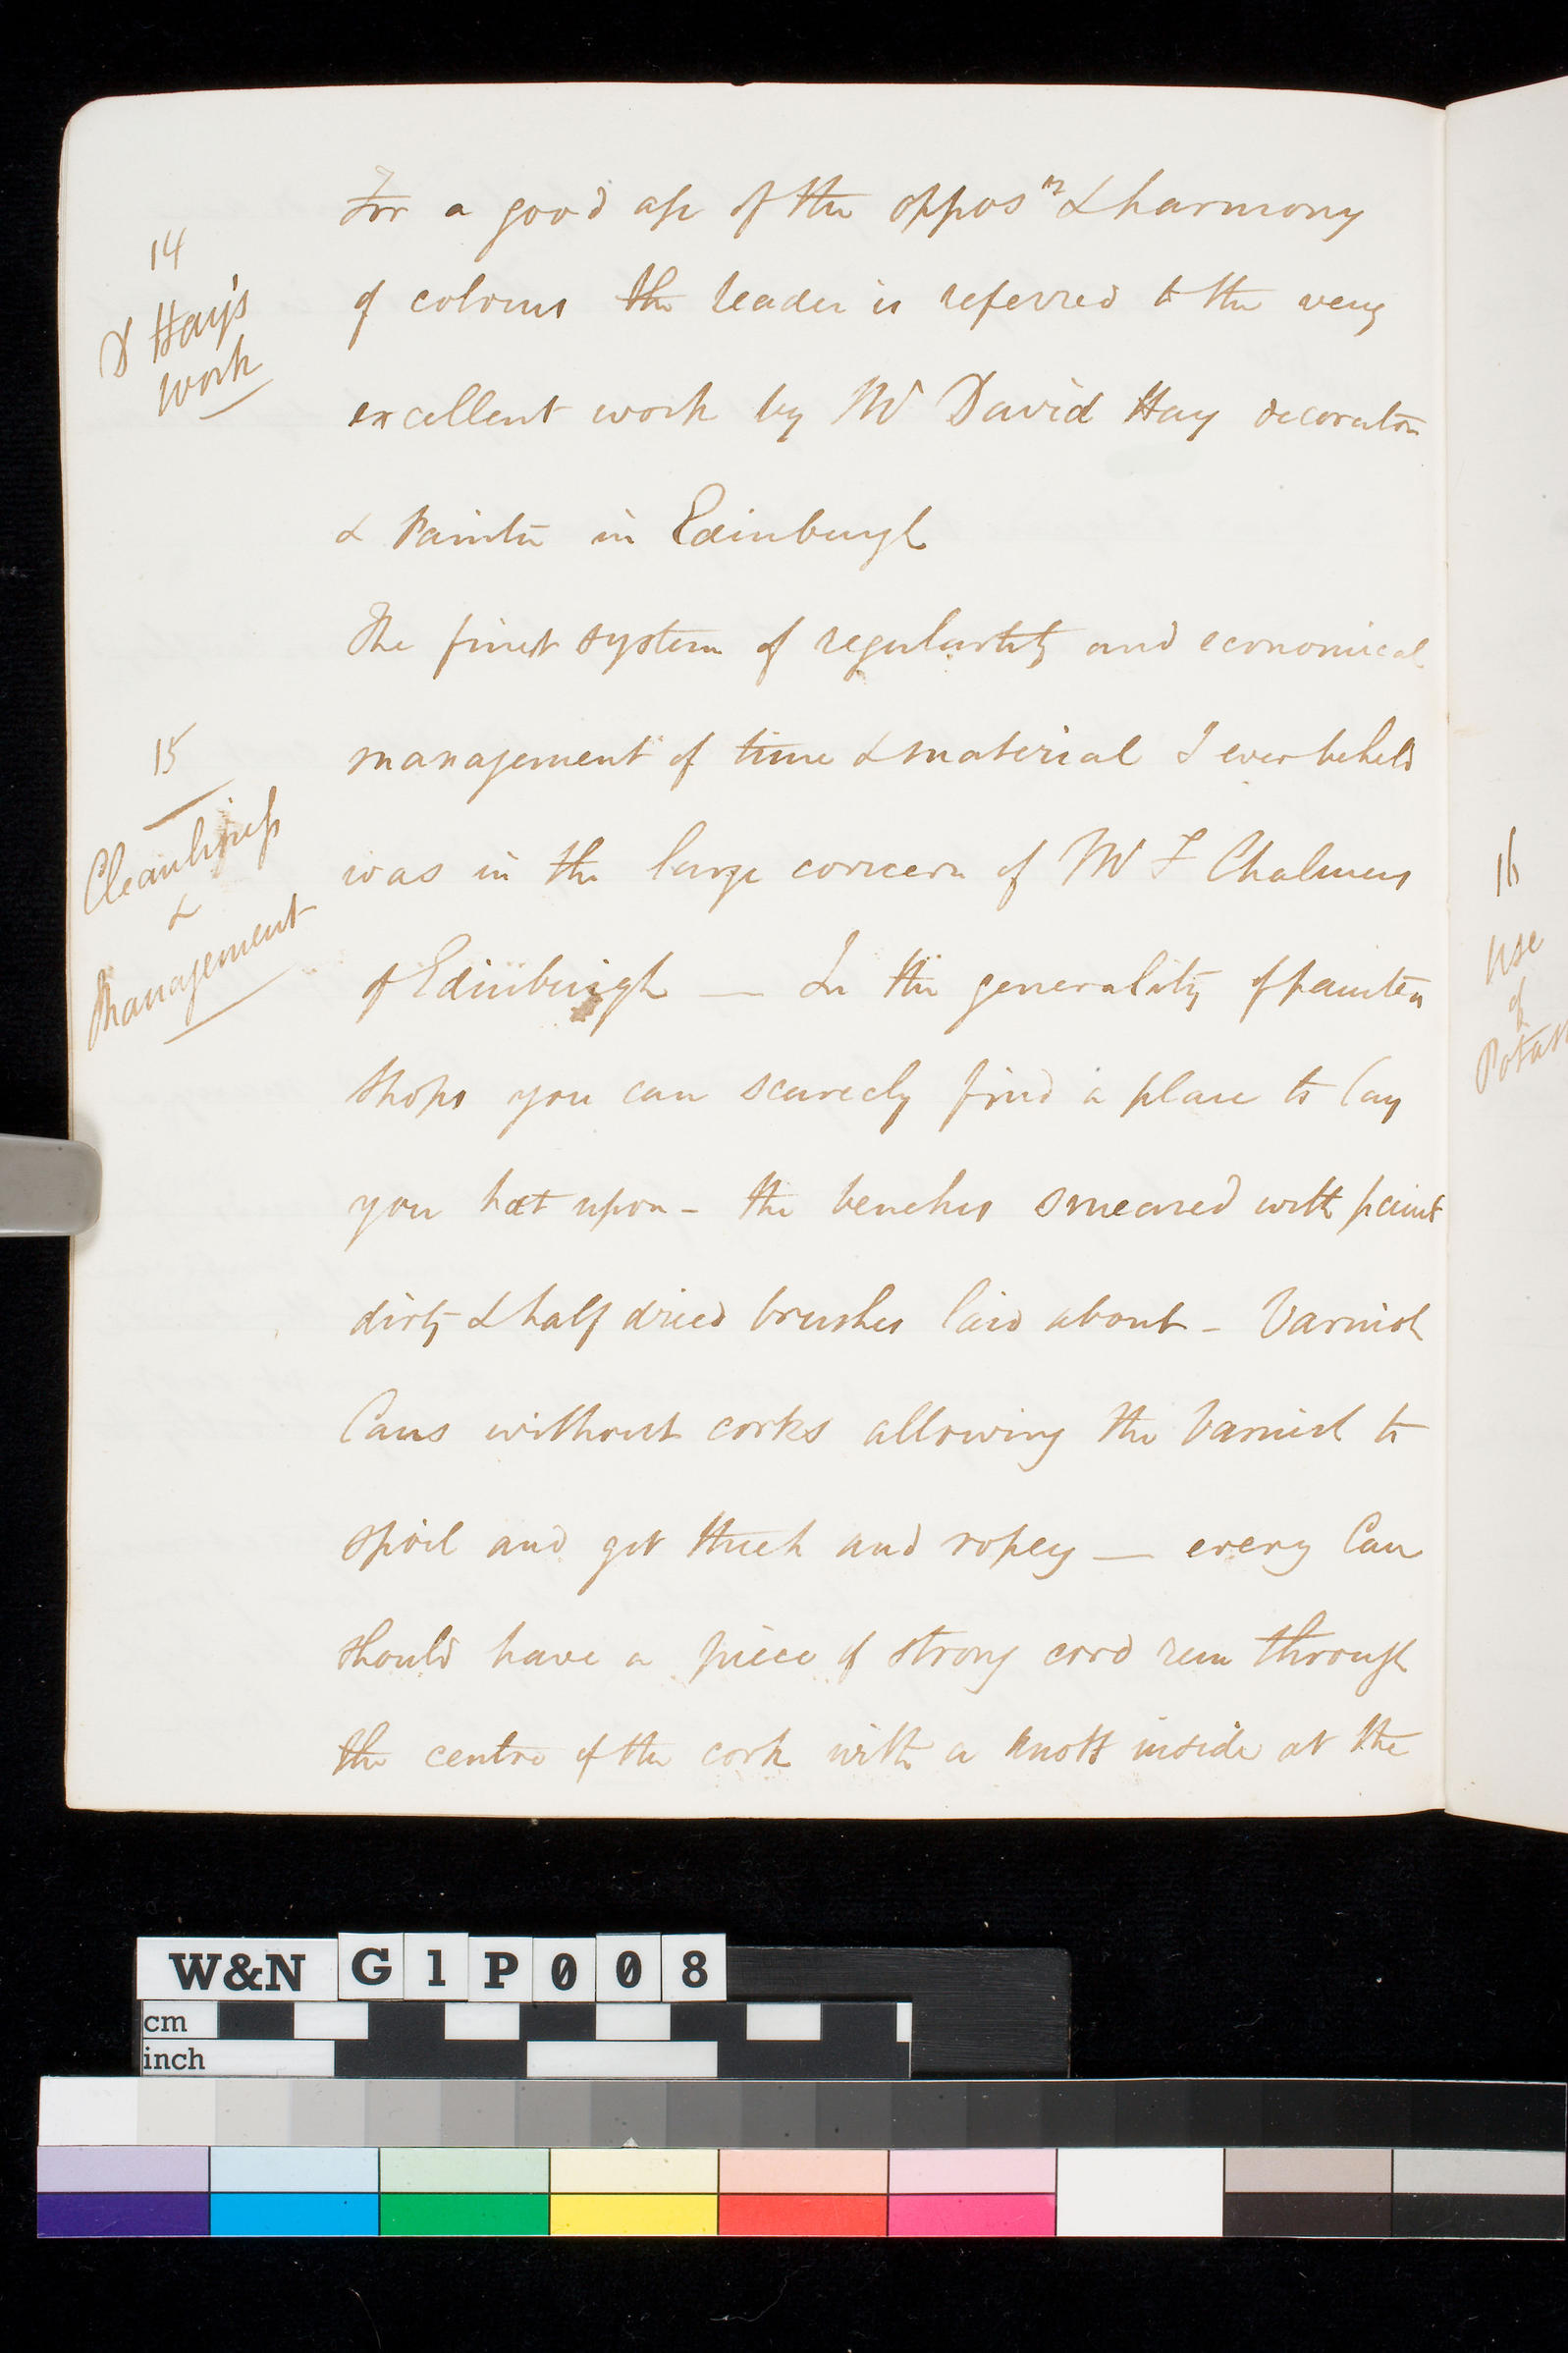 14
D Hay's
work
For a good ase of the oppos^n & harmony
of colours the reader is referred to the very
excellent work by Mr David Hay decorator
& Painter in Edinburgh
15
Cleanliness
&
Management
The finest system of regularity and economical
management of time & material I ever beheld
was in the large concern of Mr F Chalmers
of Edinburgh — In the generality of painters
shops you can scarcely find a place to lay
you hat upon - the benches smeared with paint
dirty & half dried brushes laid about - Varnish
Cans without corks allowing the Varnish to
spoil and get thick and ropey — every Can
should have a piece of strong cord run through
the centre of the cork with a knott inside at the
16
Use
of
W&N G1P008
cm
inch